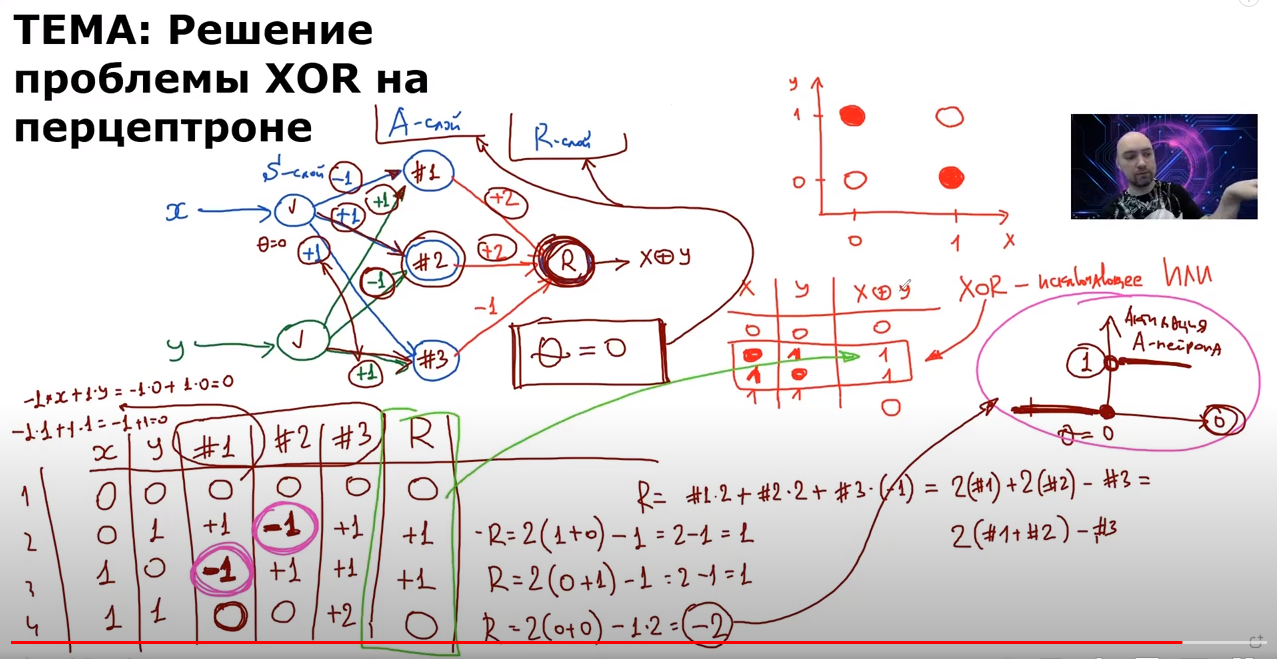 ТЕМА: Решение
проблемы XOR на
перцептроне
A-слой
R-слой
S-слой
-1
+1
+1
#1
+2
x
θ=0
+1
-1
#2
+2
R
X⊕y
-1
y
+1
#3
θ = 0
y
1
0
0 1 x
X y X⊕y
0 0 0
0 1 1
1 0 1
1 1 0
XOR - исключающее ИЛИ
Активация
A-нейрона
1
θ= 0
σ
-1·x+1·y = -1·0+1·0=0
-1·1+1·1=-1+1=0
x y #1 #2 #3 R
1 0 0 0 0 0 0
2 0 1 +1 -1 +1 +1
3 1 0 -1 +1 +1 +1
4 1 1 0 0 +2 0
R= #1·2+#2·2+#3·(-1) = 2(#1)+2(#2)-#3 =
2(#1+#2)-#3
R=2(1+0)-1=2-1=1
R=2(0+1)-1=2-1=1
R=2(0+0)-1·2=-2